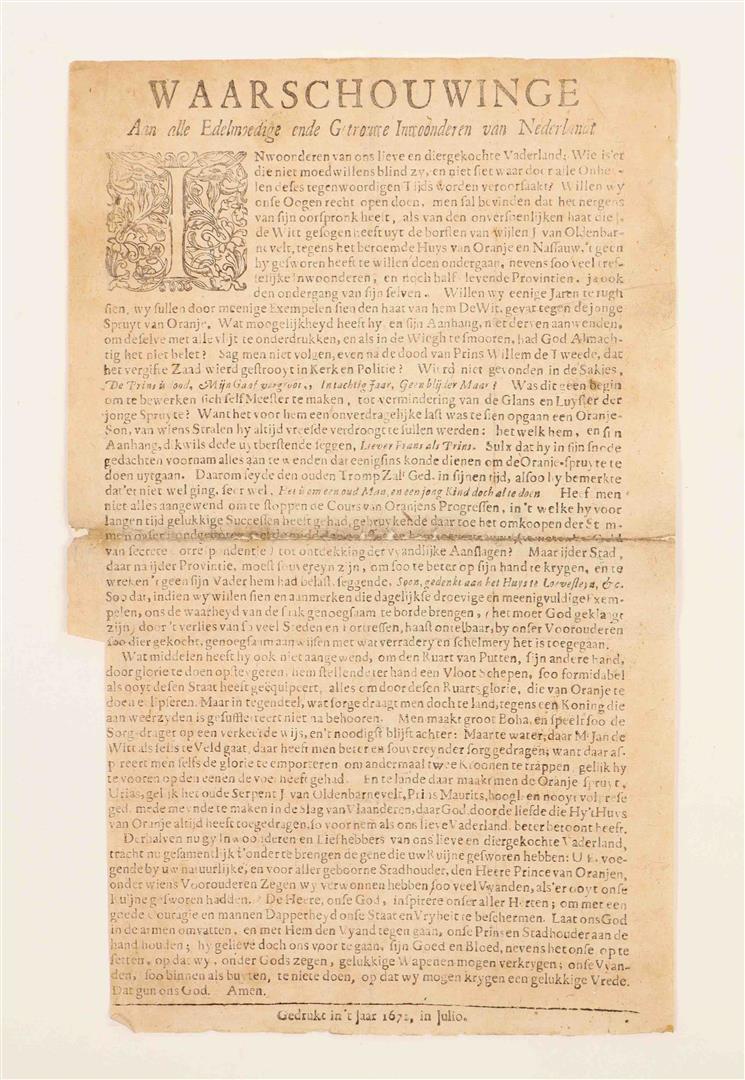 WAARSCHOUWINGE
Aan alle Edelmoedige ende Getrouwe Inwoonderen van Nederlandt
INwoonderen van ons lieve en diergekochte Vaderland: Wie is'er
die niet moedwillens blind zy, en niet siet waar door alle Onhe-
len deses tegenwoordigen Tijds worden veroorsaakt? Willen wy
onse Oogen recht open doen, men sal bevinden dat het nergens
van sijn oorspronk heeft, als van den onversoenlijken haat die J.
de Witt gesogen heeft uyt de borsten van wijlen J van Oldenbar-
nevelt, tegens het beroemde Huys van Oranje en Nassauw. 't geen
hy gesworen heeft te willen doen ondergaan, nevens soo veel tref-
felijke Inwoonderen, en noch half levende Provintien. ja ook
den ondergang van sijn selven. Willen wy eenige Jaren te rugh
sien, wy sullen door meenige Exempelen sien den haat van hem De Wit, gevat tegen de jonge
Spruyt van Oranje. Wat moogelijkheyd heeft hy en sijn Aanhang, niet derven aanwenden,
om deselve met alle vlijt te onderdrukken, en als in de Wiegh te smooren, had God Almach-
tig het niet belet? Sag men niet volgen, even na de dood van Prins Willem de Tweede, dat
het vergiftе Zaad wierd gestrooyt in Kerk en Politie? Wierd niet gevonden in de Sakjes,
De Prins is dood, Mijn Gaaf vergroot, In tachtig Jaar, Geen blijder Maar? Was dit geen begin
om te bewerken sich self Meester te maken, tot vermindering van de Glans en Luyster der
jonge Spruyte? Want het voor hem een onverdragelijke last was te sien opgaan een Oranje-
Son, van wiens Stralen hy altijd vreesde verdroogt te sullen werden: het welk hem, en sijn
Aanhang, dikwils dede uytberstende seggen, Liever Frans als Prins. Sulx dat hy in sijn snode
gedachten voornam alles aan te wenden dat eenigsins konde dienen om de Oranje-spruyte te
doen uytgaan. Daarom seyde den ouden Tromp Zal: Ged. in sijnen tijd, alsoo hy bemerkte
dat'et niet wel ging, seer wel, Het is om een oud Man, en een jong Kind doch al te doen Heeft men
niet alles aangewend om te stoppen de Cours van Oranjens Progressen, in 't welke hy voor
langen tijd gelukkige Successen heeft gehad, gebruykende daar toe het omkoopen der Stem-
men onser
van secrete Correspondentie) tot ontdekking der vyandlijke Aanslagen? Maar ijder Stad,
daar na ijder Provintie, moest souvereyn zijn, om soo te beter op sijn hand te krygen, en te
wreken 't geen sijn Vader hem had belast, seggende, Soon, gedenkt aan het Huys te Loevesteyn, &c.
Soo dat, indien wy willen sien en aanmerken die dagelijkse droevige en meenigvuldige Exem-
pelen, ons de waarheyd van de saak genoegsaam te borde brengen, (het moet God geklaagt
zijn) door 't verlies van so veel Steden en Fortressen, haast ontelbaar, by onser Voorouderen
soo dier gekocht, genoegsaam aanwijsen met wat verradery en schelmery het is toegegaan.
Wat middelen heeft hy ook niet aangewend, om den Ruart van Putten, sijn andere hand,
door glorie te doen opsteygeren, hem stellende ter hand een Vloot Schepen, soo formidabel
als ooyt desen Staat heeft geëquipeert, alles om door desen Ruarts glorie, die van Oranje te
doen eclipseren. Maar in tegendeel, wat sorge draagt men doch te land, tegens een Koning die
aan weerzyden is gesuffisteert niet na behooren. Men maakt groot Boha, en speelt soo de
Sorg-drager op een verkeerde wijs, en 't noodigst blijft achter: Maar te water, daar Mr Jan de
Witt als selfs te Veld gaat, daar heeft men beter en souvereynder sorg gedragen; want daar as-
pireert men selfs de glorie te emporteren, om andermaal twee Kroonen te trappen, gelijk hy
te vooren op den eenen de voet heeft gehad. En te lande daar maakt men de Oranje spruyt,
Urias, gelijk het oude Serpent J. van Oldenbarnevelt, Prins Maurits, hoogl. en nooyt volprese
ged. mede meynde te maken in de Slag van Vlaanderen, daar God, door de liefde die Hy 't Huys
van Oranje altijd heeft toegedragen, so voor hem als ons lieve Vaderland, beter betoont heeft.
Derhalven nu gy Inwoonderen en Liefhebbers van ons lieve en diergekochte Vaderland,
tracht nu gesamentlijk t'onder te brengen de gene die uw Ruijne gesworen hebben: U E. voe-
gende by uw natuurlijke, en voor aller geboorne Stadhouder, den Heere Prince van Oranjen,
onder wiens Voorouderen Zegen wy verwonnen hebben soo veel Vyanden, als'er ooyt onse
Ruijne gesworen hadden. De Heere, onse God, inspirere onser aller Herten; om met een
goede Couragie en mannen Dapperheyd onse Staat en Vryheit te beschermen. Laat ons God
in de armen omvatten, en met Hem den Vyand tegen gaan, onse Prins en Stadhouder aan de
hand houden; hy gelieve doch ons voor te gaan, sijn Goed en Bloed, nevens het onse op te
setten, op dat wy, onder Gods zegen, gelukkige Wapenen mogen verkrygen; onse Vyan-
den, soo binnen als buyten, te niete doen, op dat wy mogen krygen een gelukkige Vrede.
Dat gun ons God. Amen.
Gedrukt in 't Jaar 1672, in Julio.